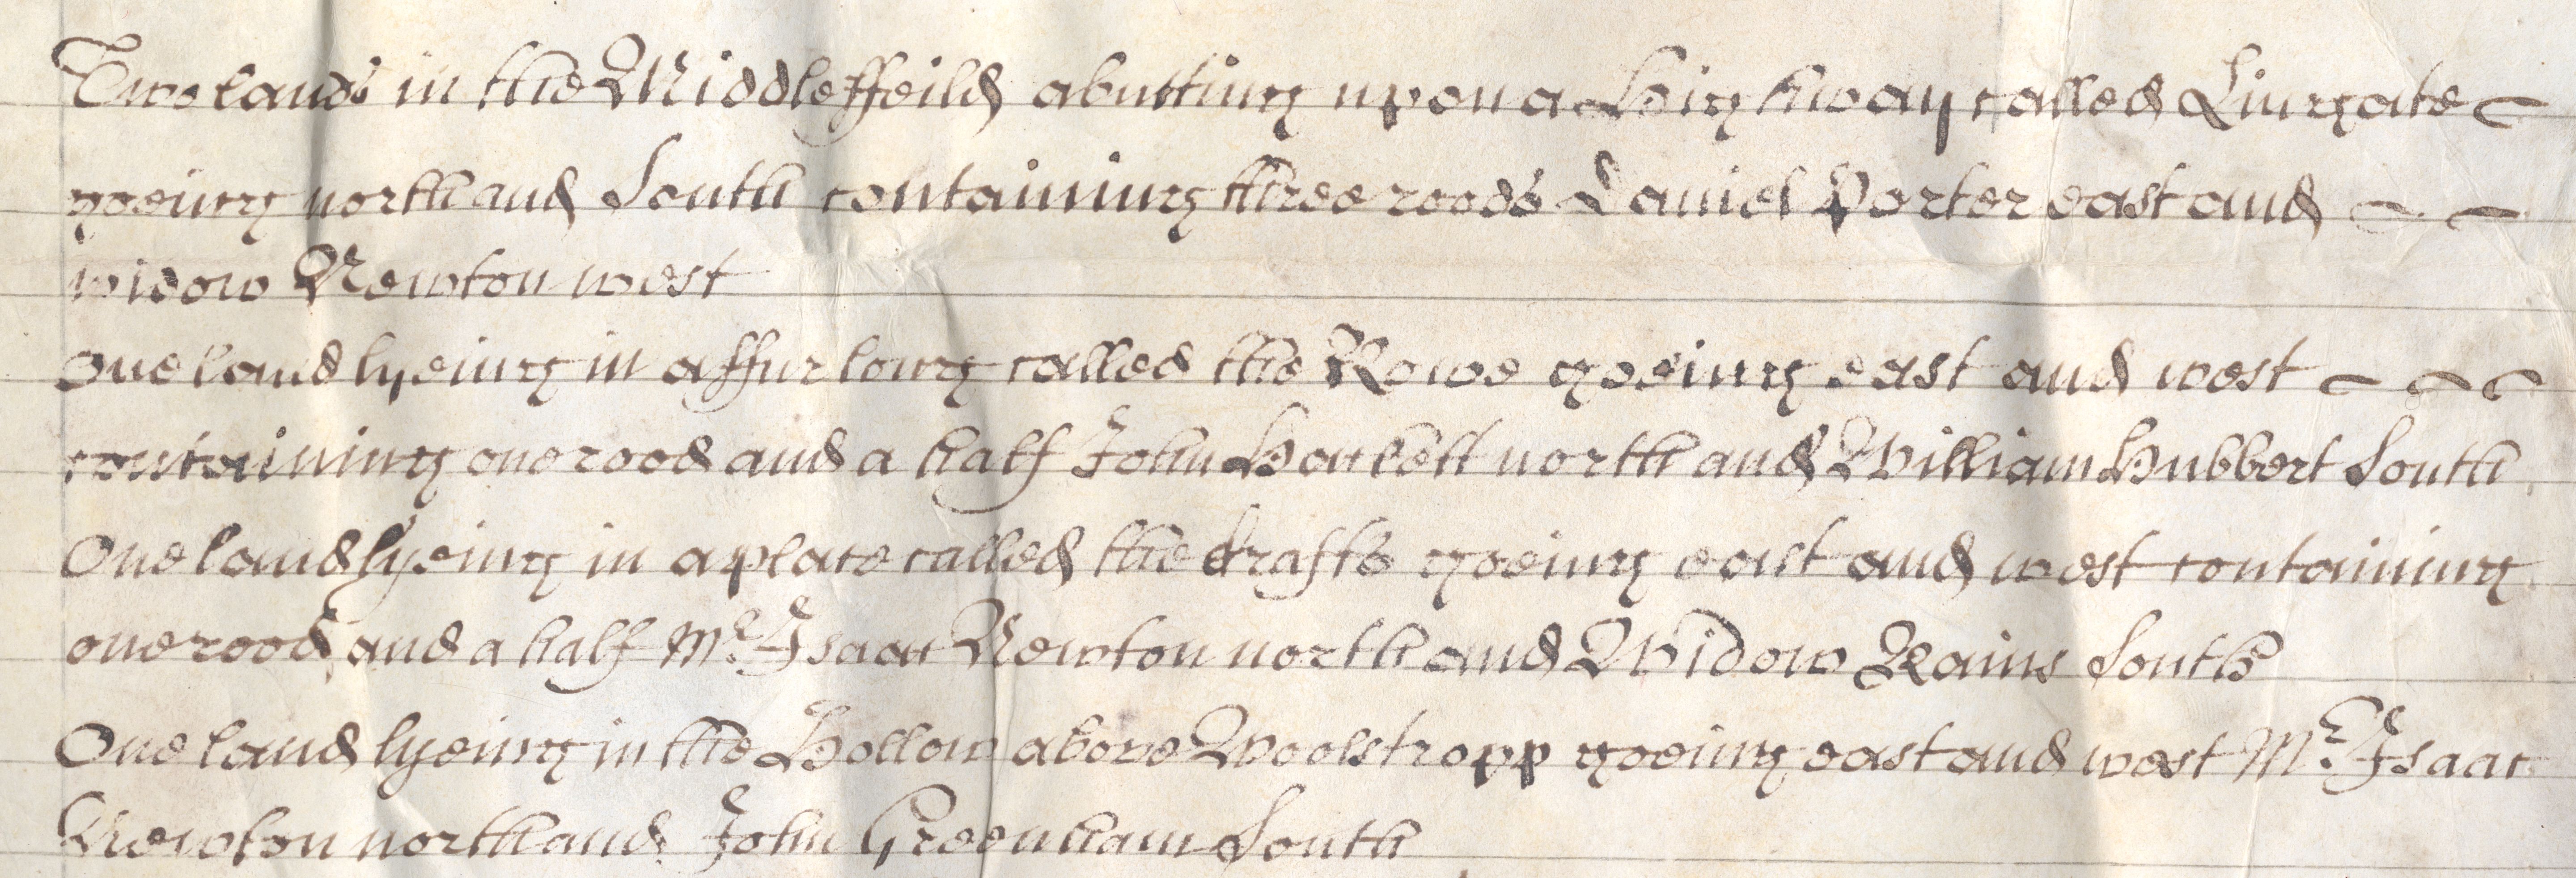 Two lands in the Middleffeild abutting upon a Highway called Lingate
goeing north and South containing three roods Daniel Porter east and
widow Newton west
One land lyeing in affurlong called the Rowe goeing east and west
containing one rood and a half John Hackett north and William Hubbert South
One land lyeing in a place called the draffts goeing east and west containing
one rood and a half Mr. Isaac Newton north and Widow Rains South
One land lyeing in the Hollow above Woolstropp goeing east and west Mr. Isaac
Newton north and John Greenham South